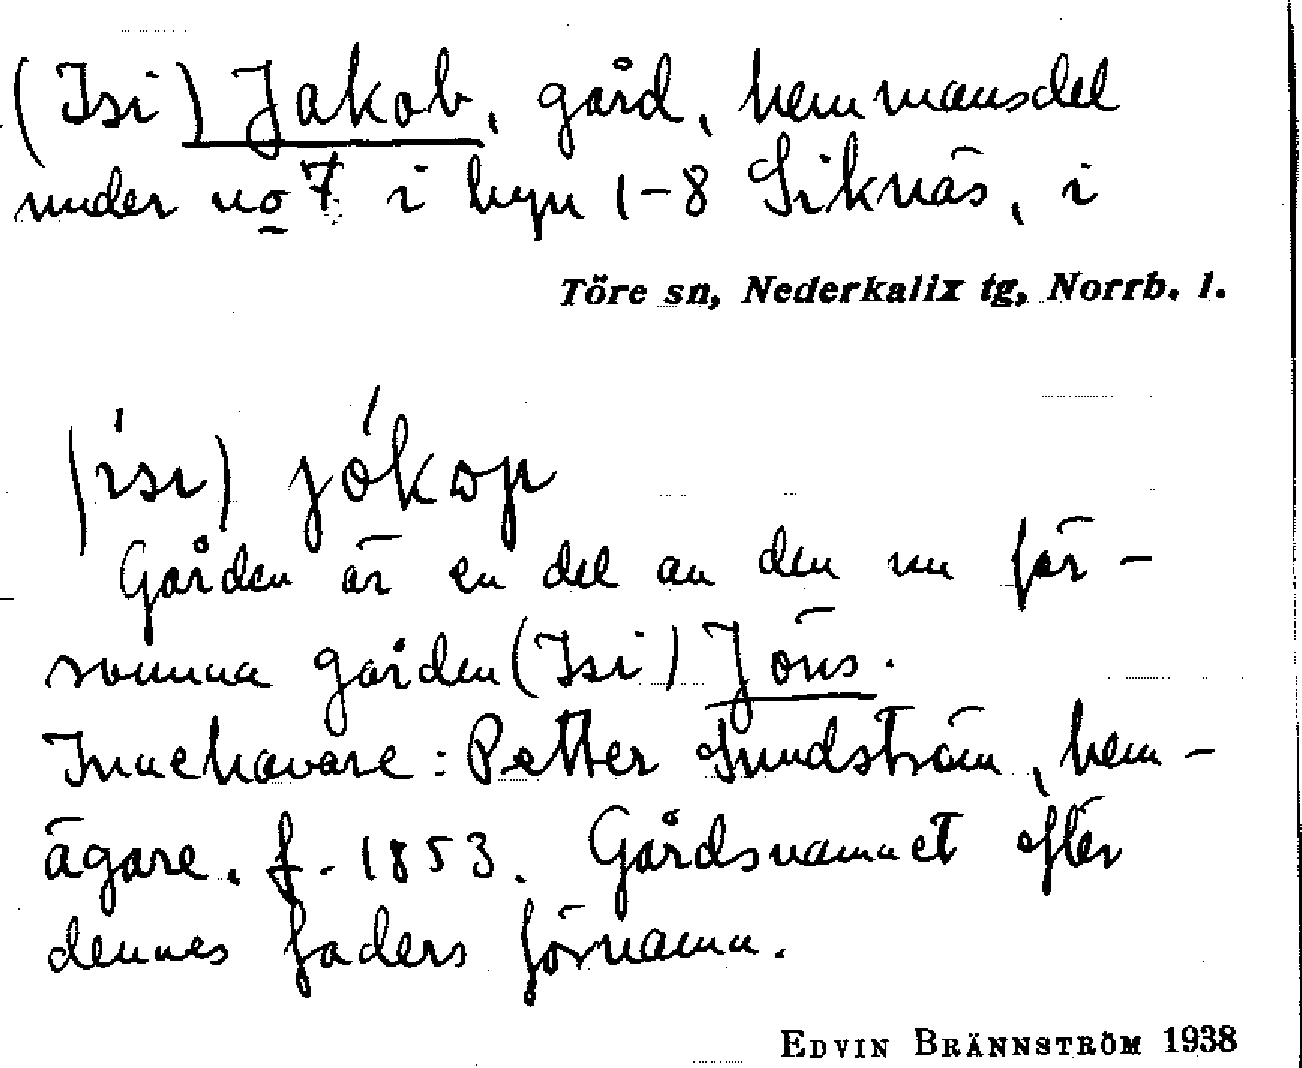 (Isi) Jakob, gård, hemmansdel
under no 7 i byn 1-8 Siknäs, i
Töre sn, Nederkalix tg, Norrb. l.
(ísı) jókɒp
Gården är en del av den nu för-
svunna gården (Isi) Jöns.
Innehavare: Petter Sundström, hem-
ägare, f. 1853. Gårdsnamnet efter
dennes faders förnamn.
EDVIN BRÄNNSTRÖM 1938